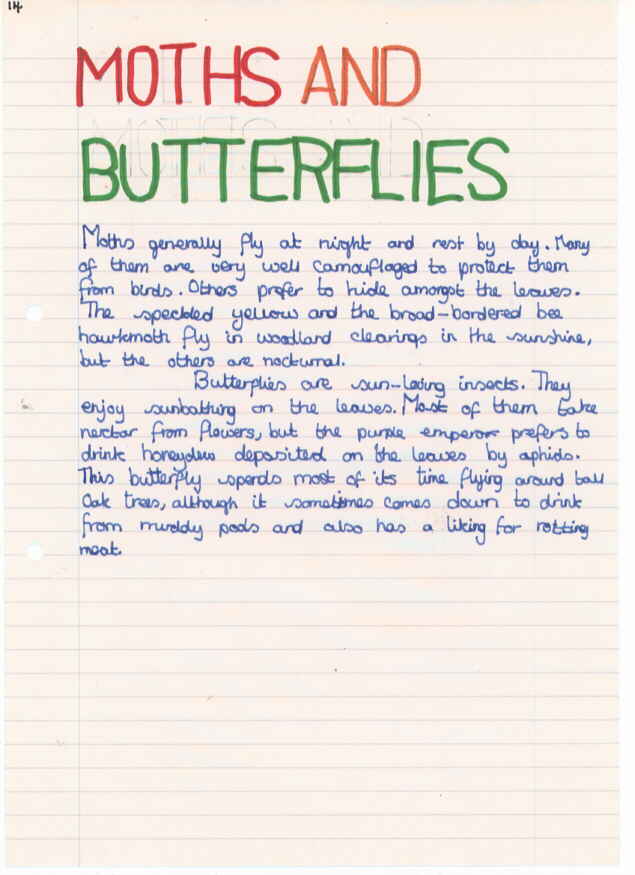 14
MOTHS AND
BUTTERFLIES
Moths generally fly at night and rest by day. Many
of them are very well camouflaged to protect them
from birds. Others prefer to hide amongst the leaves.
The speckled yellow and the broad-bordered bee
hawkmoth fly in woodland clearings in the sunshine,
but the others are nocturnal.
Butterflies are sun-loving insects. They
enjoy sunbathing on the leaves. Most of them take
nectar from flowers, but the purple emperor prefers to
drink honeydew deposited on the leaves by aphids.
This butterfly spends most of its time flying around tall
Oak trees, although it sometimes comes down to drink
from muddy pools and also has a liking for rotting
meat.